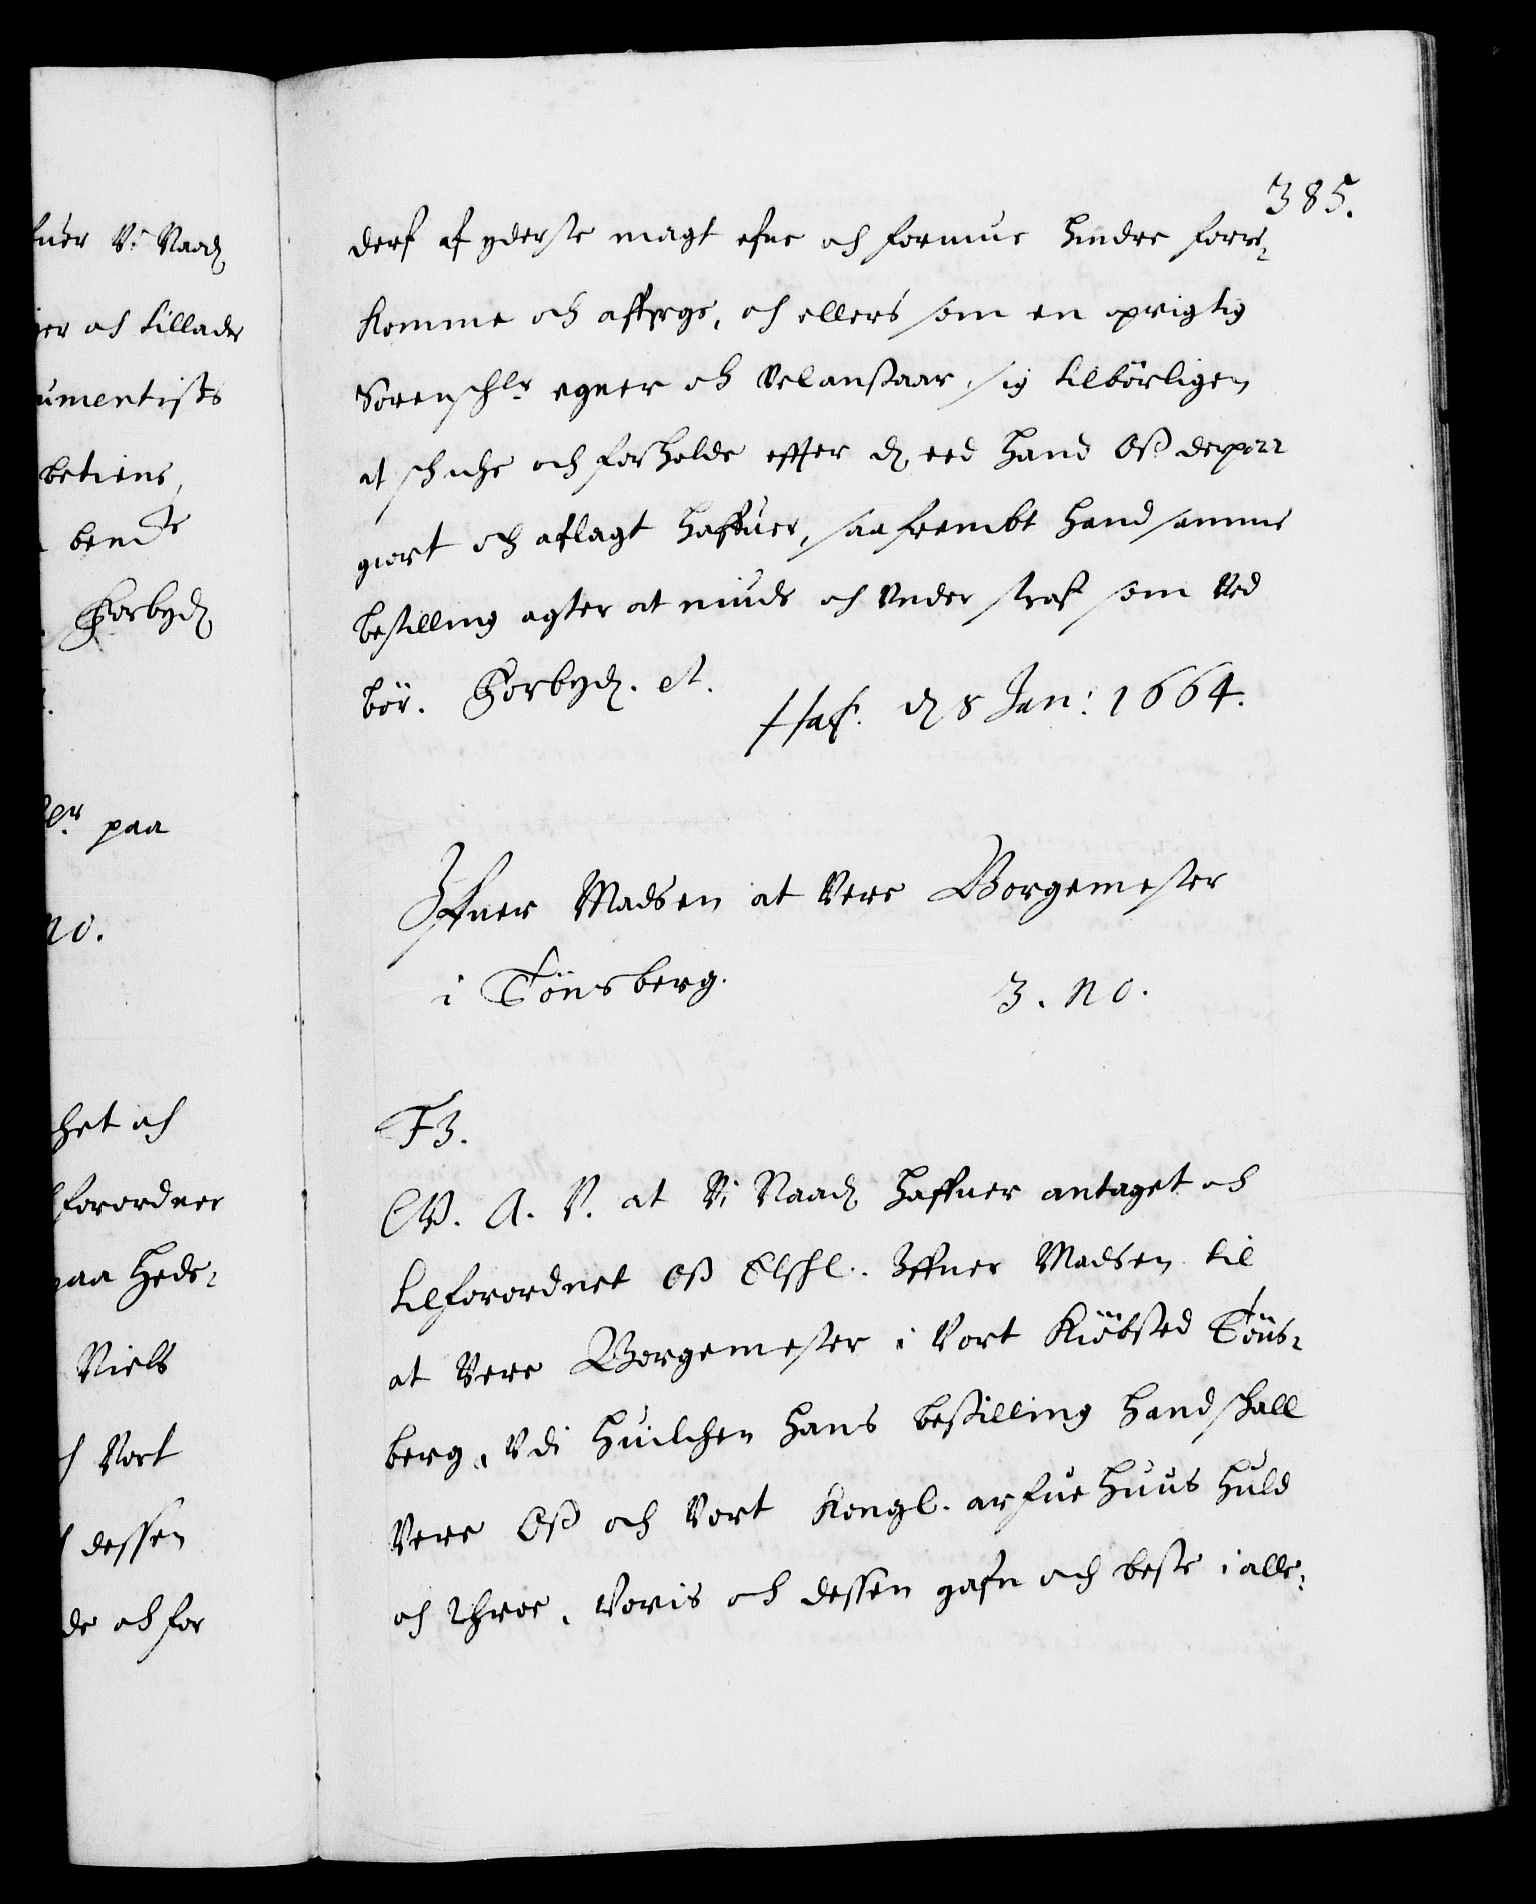 fuer Vi Naad
er och tillader
umentists
betiens,
bende
Forbyd
paa
no.
het och
forordner
paa Heds-
Niels
Vort
dessen
de och for
385.
derf af yderste magt efne och formue hindre forre-
komme och affverge, och ellers som en oprigtig
Sorenschr egner och Velanstaar, sig tilbörligen
at schiche och forholde effter d eed hand Oß depaa
giort och aflagt haffuer, saafrembt hand samme
bestilling agter at niude och Vnder straf som Ved
bör. Forbyd. et.
Haf. d 8 Jan: 1664.
Iffuer Madsen at Vere Borgemester
i Tönsberg. 3. no.
F3.
G.V. A. V. at Vi Naad haffuer antaget och
tilforordnet Oß Elschl. Iffuer Madsen til
at Vere Borgemester i Vort Kiöbsted Töns-
berg, Vdi huilchen hans bestilling hand schall
Vere Oß och Vort Kongl. arfue Huus huld
och throe, Voris och dessen gafn och beste i alle-